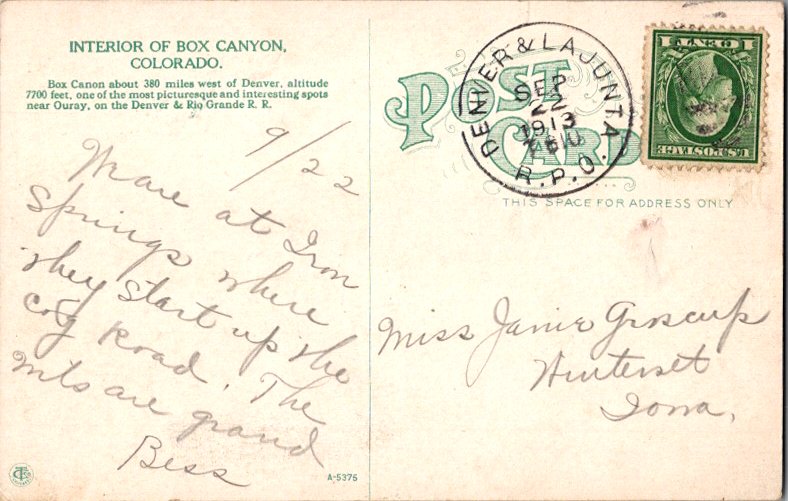 INTERIOR OF BOX CANYON,
COLORADO.
Box Canon about 380 miles west of Denver, altitude
7700 feet, one of the most picturesque and interesting spots
near Ouray, on the Denver & Rio Grande R. R.
9/22
at Iron
Springs where
they start up the
Cog Road. The
mts are grand
Bess
A-5375
POST
CARD
THIS SPACE FOR ADDRESS ONLY
DENVER & LAJUNTA
SEP
22
1913
R.P.O.
U.S.POSTAGE
1 CENT 1
Miss Janie Groscup
Winterset
Iowa.